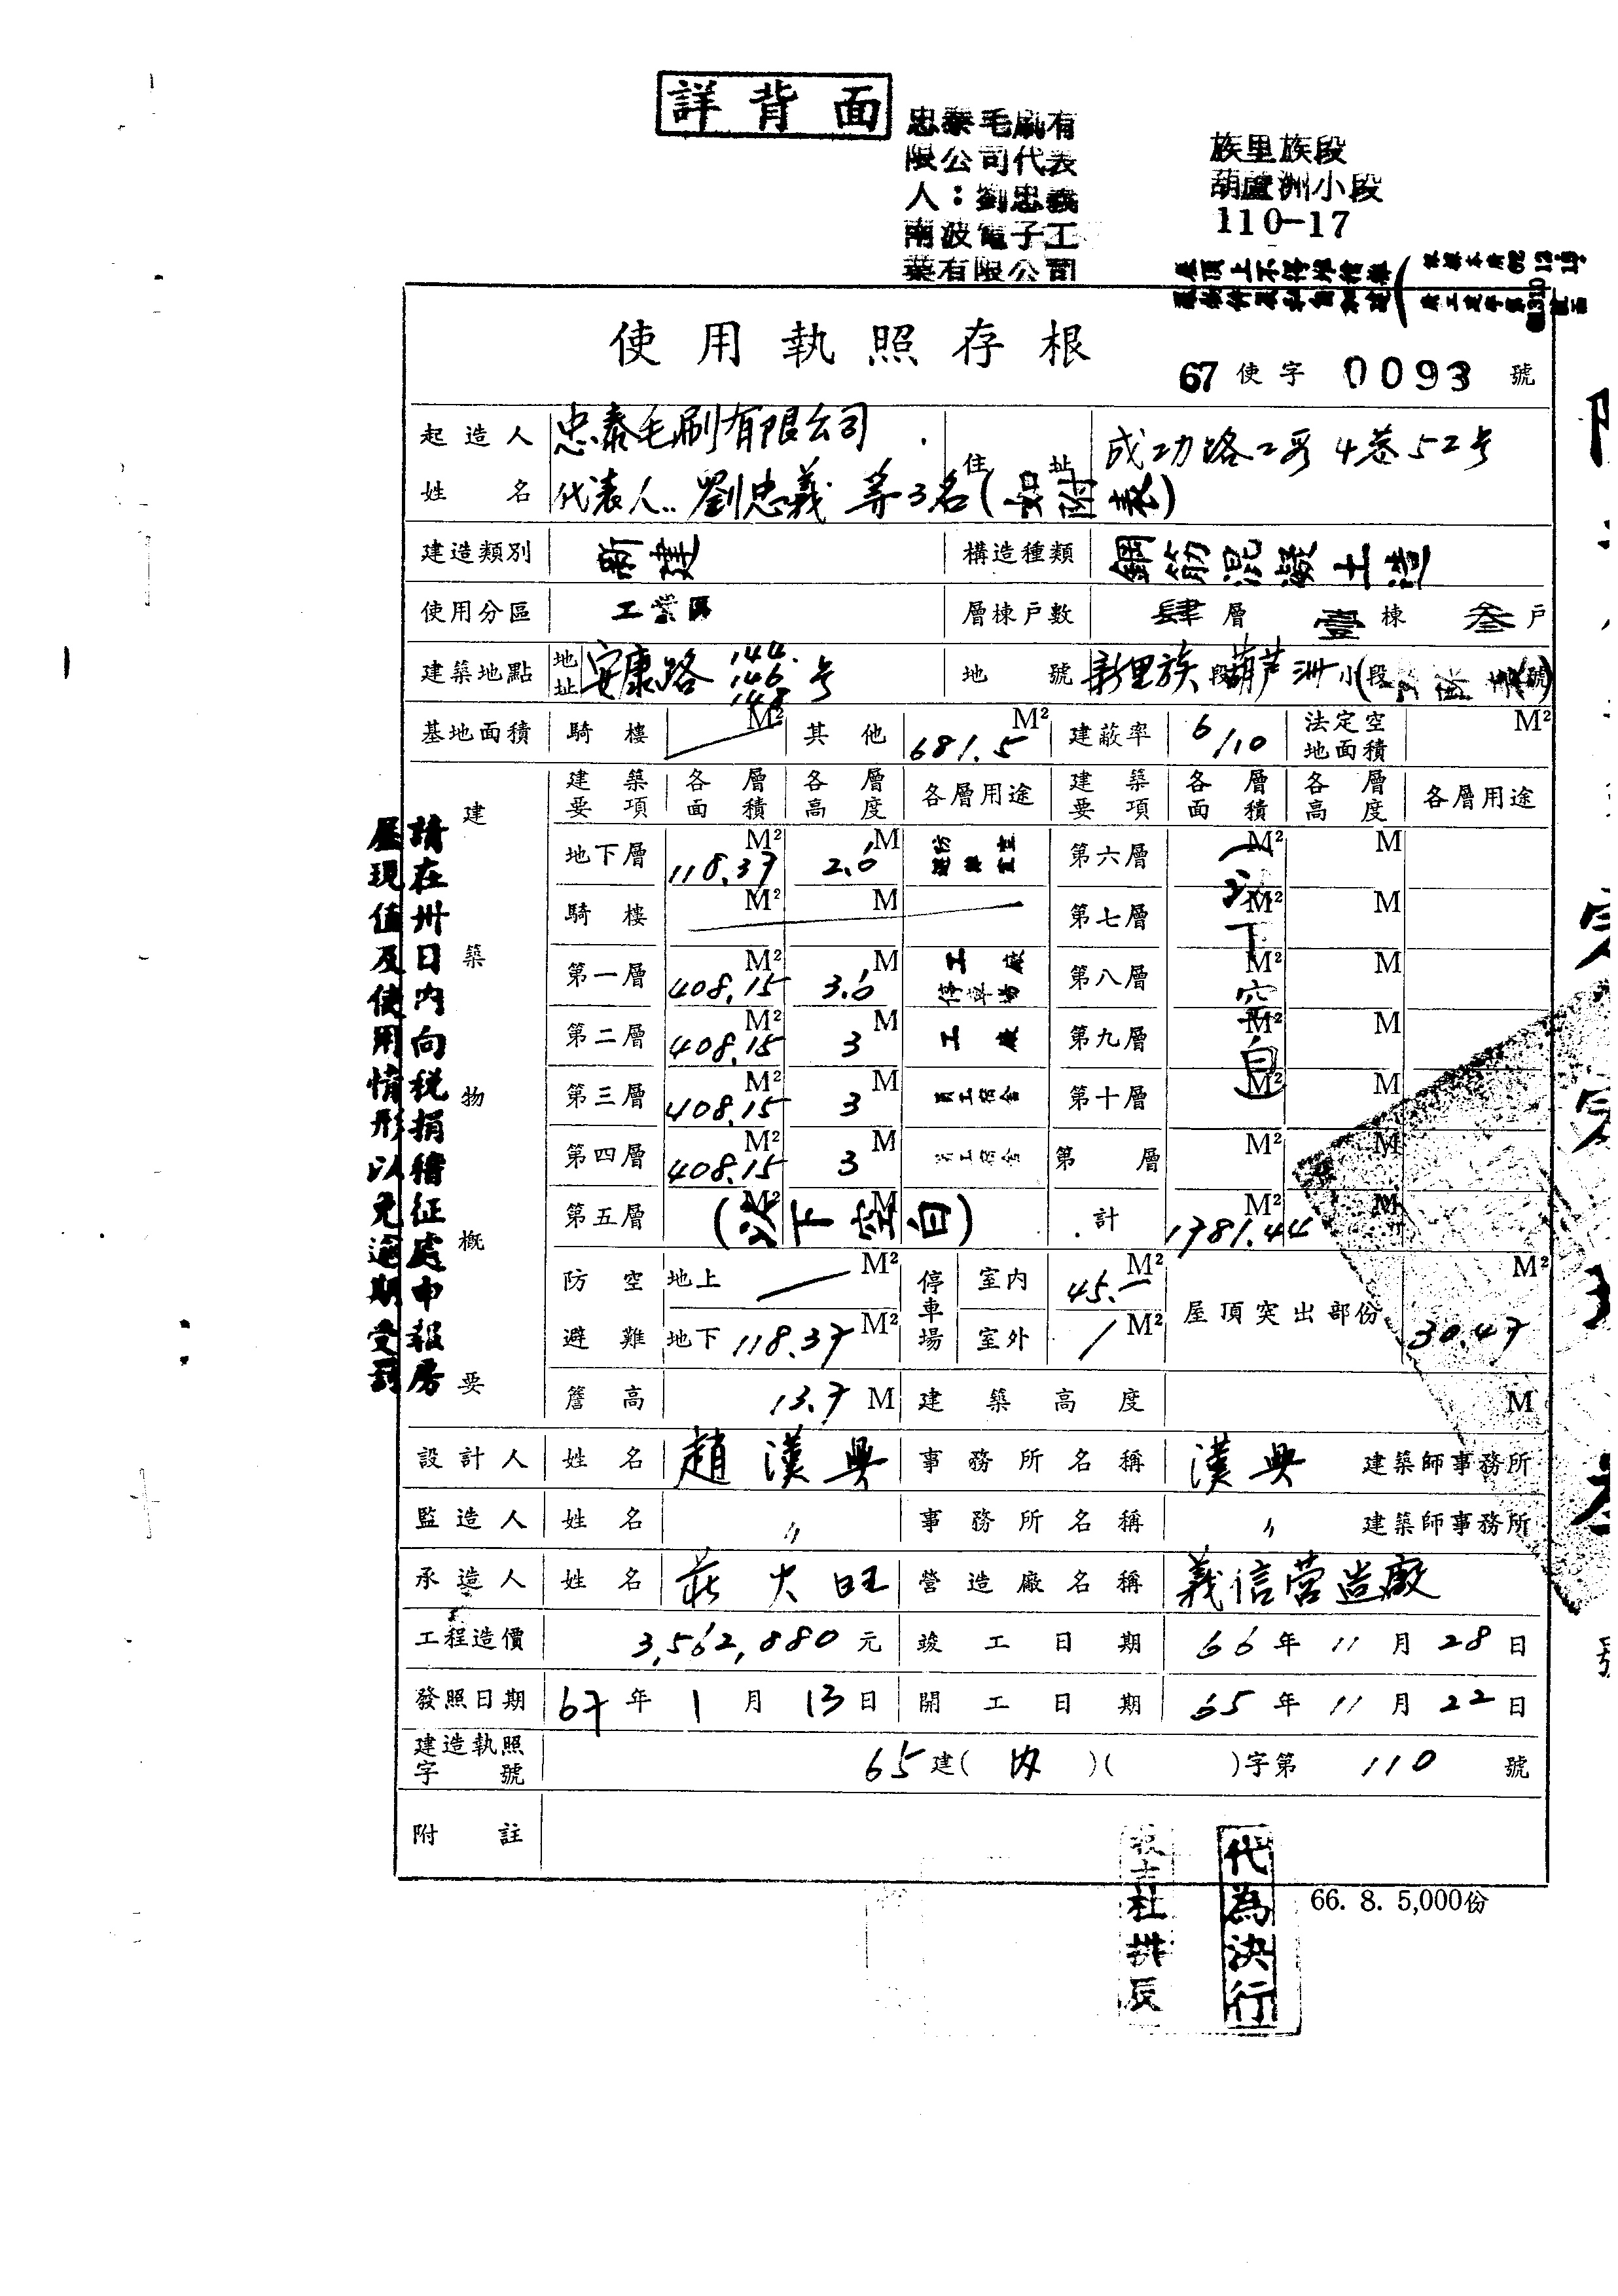 詳背面
忠泰毛刷有
限公司代表
人：劉忠義
南波電子工
業有限公司
族里族段
葫蘆洲小段
110-17
屋頂上不得堆積雜
使用執照存根
67 使字 0093 號
起造人姓名 忠泰毛刷有限公司 代表人..劉忠義等3名(如附表) 住址 成功路2段4巷52号
建造類別 新建 構造種類 鋼筋混凝土造
使用分區 工業區 層棟戶數 肆層 壹棟 叁戶
建築地點 地址 安康路 144. 146. 148 号 地號 新里族段葫芦洲小段 號
基地面積 騎樓 M² 其他 681.5 M² 建蔽率 6/10 法定空地面積 M²
建築物概要
建築要項 各層面積 各層高度 各層用途 建築要項 各層面積 各層高度 各層用途
地下層 118.37 M² 2.6 M 第六層 M² M
騎樓 M² M 第七層 M² M
第一層 408.15 M² 3.6 M 工廠 停車場 第八層 M² M
第二層 408.15 M² 3 M 工廠 第九層 M² M
第三層 408.15 M² 3 M 員工宿舍 第十層 M² M
第四層 408.15 M² 3 M 員工宿舍 第 層 M² M
第五層 (以下空白) M² M 計 1781.44 M² M
(以下空白)
防空避難 地上 M² 地下 118.37 M² 停車場 室內 45.— M² 室外 / M² 屋頂突出部份 30.47 M²
簷高 13.7 M 建築高度 M
設計人 姓名 趙漢興 事務所名稱 漢興 建築師事務所
監造人 姓名 〃 事務所名稱 〃 建築師事務所
承造人 姓名 莊火旺 營造廠名稱 義信营造廠
工程造價 3,562,880 元 竣工日期 66年11月28日
發照日期 67年1月13日 開工日期 65年11月22日
建造執照字號 65建(内)( )字第110號
附註
請在卅日內向稅捐稽征處申報房
屋現值及使用情形以免逾期受罰
代為決行
66. 8. 5,000份